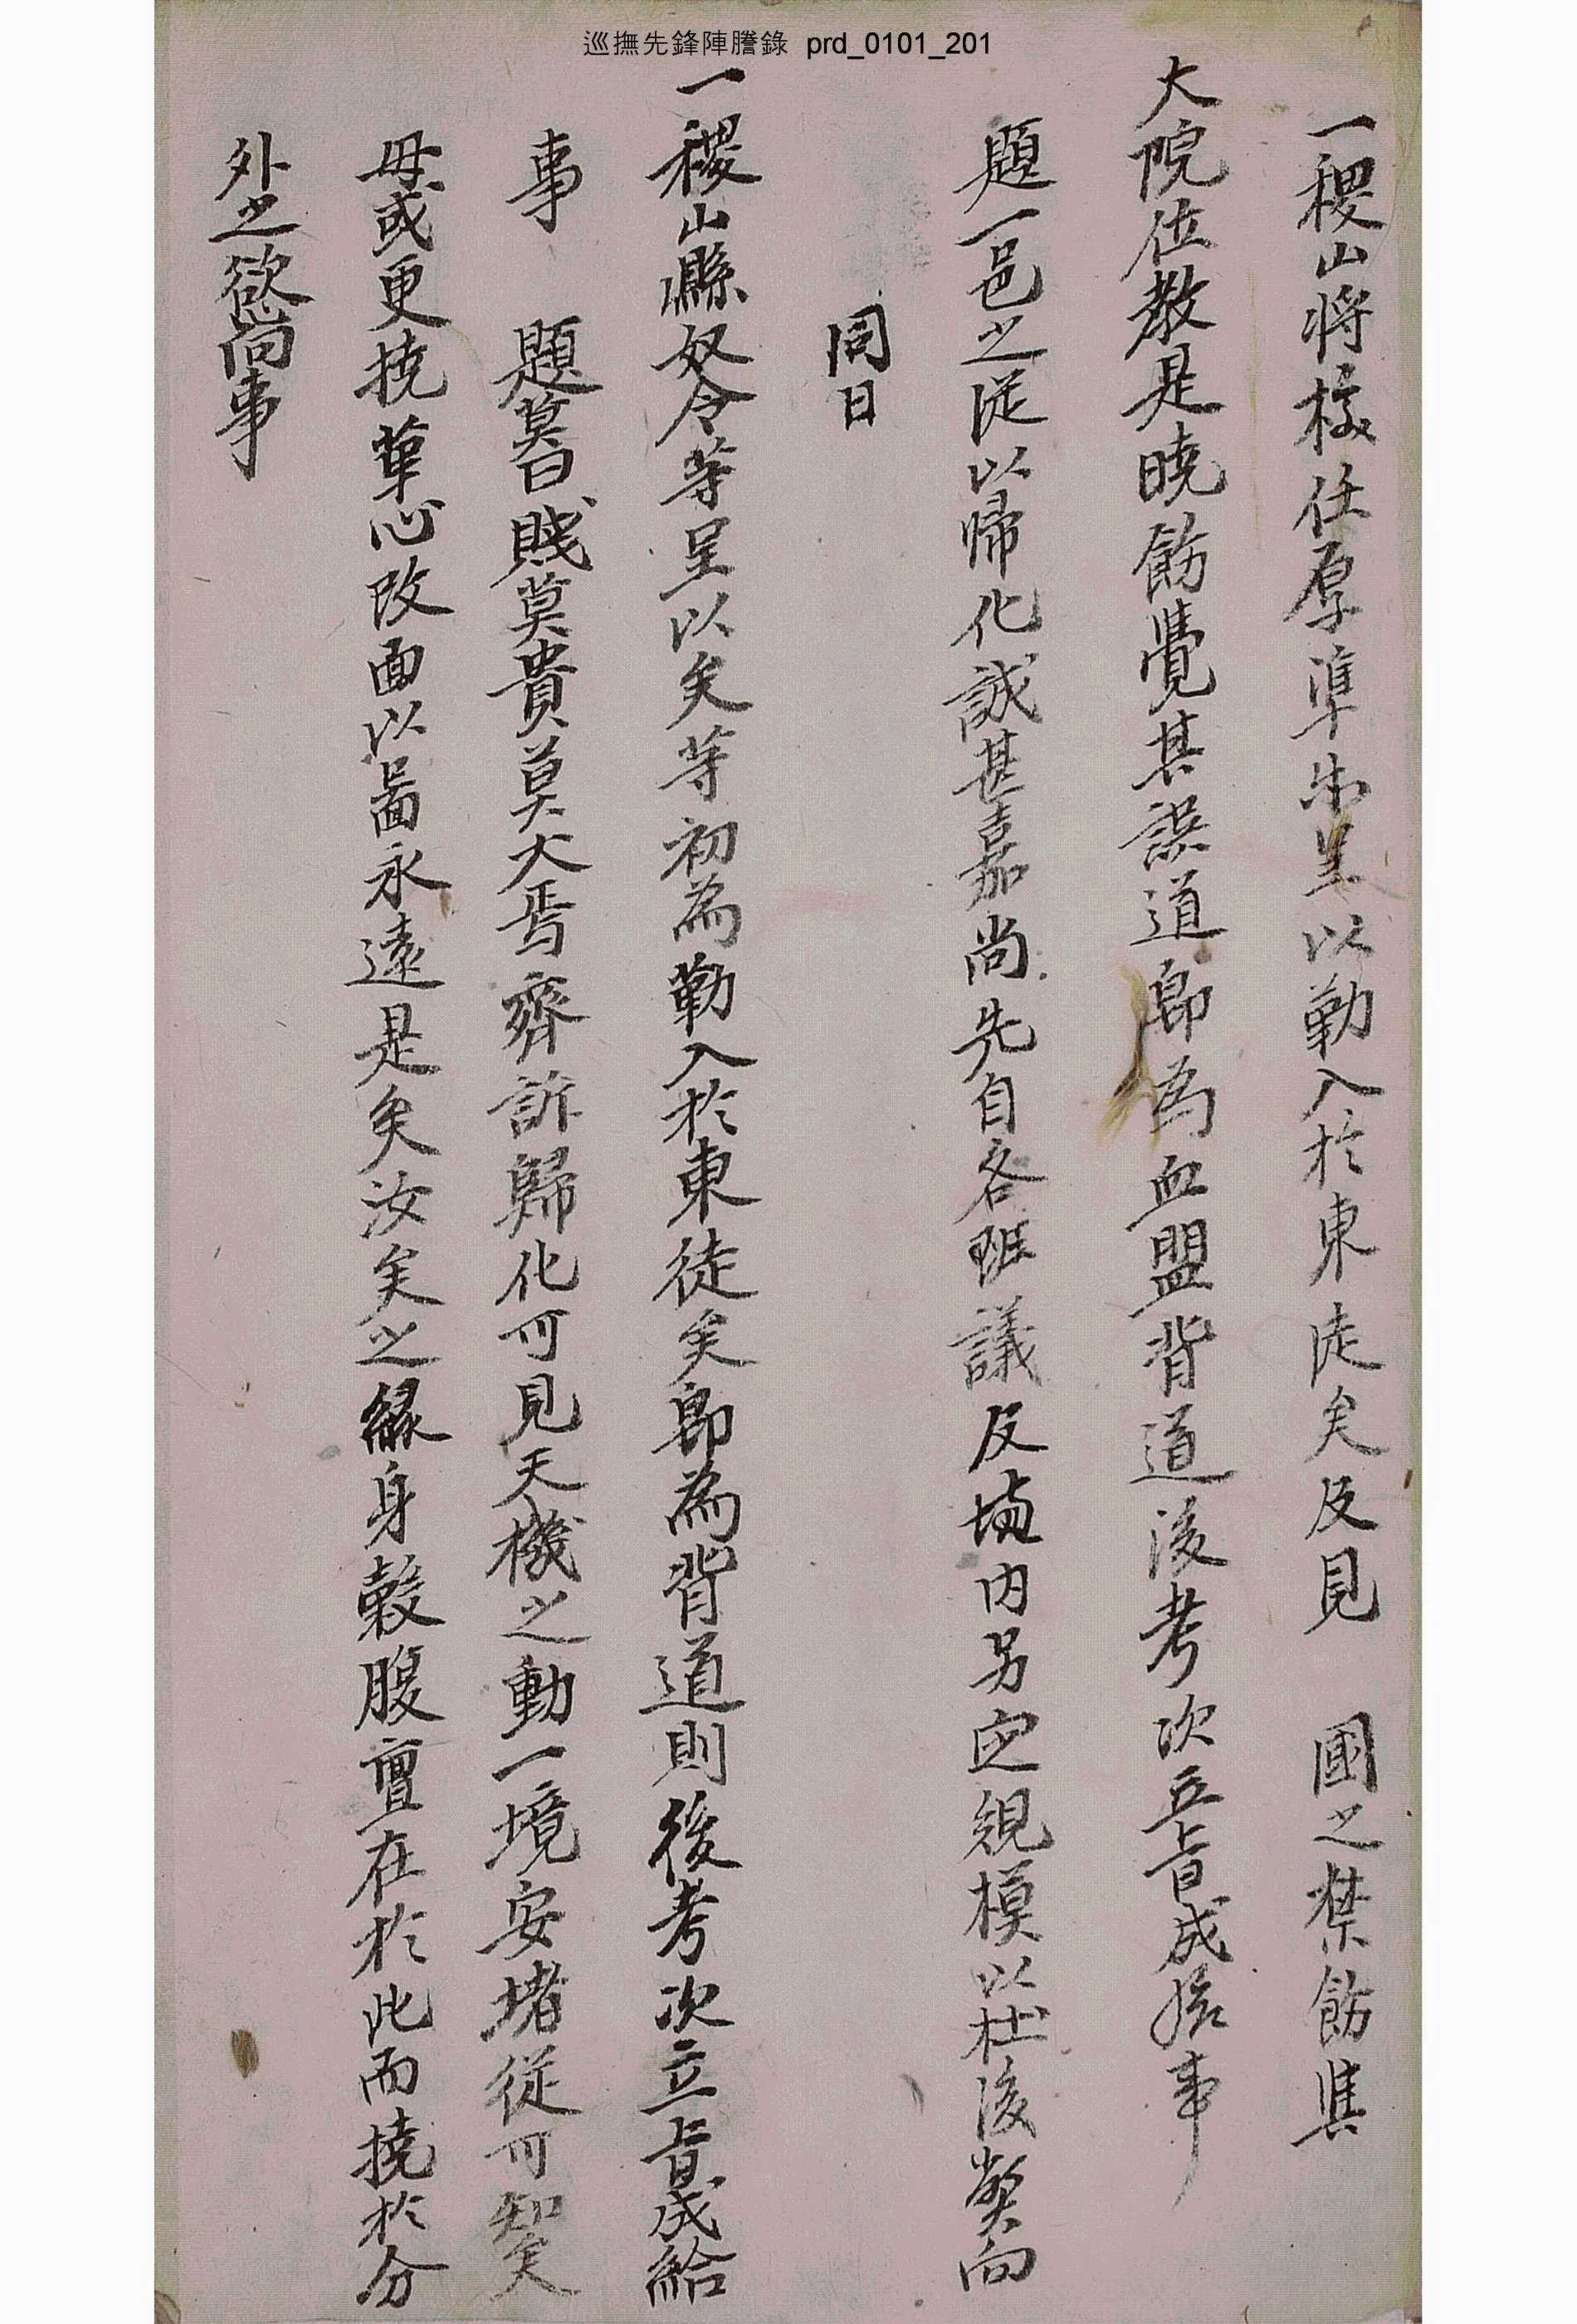 巡撫先鋒陣謄錄 prd_0101_201
一稷山將校任厚準等呈以勒入於東徒矣及見 國之禁飭與
大院位敎是曉飭覺其誤道卽爲血盟背道後考次立旨成給事
題一邑之從以歸化誠甚嘉尙先自各班議反場內另定規模以杜後弊向
同日
一稷山縣奴令等呈以矣等初爲勒入於東徒矣卽爲背道則後考次立旨成給
事 題莫曰賤莫貴莫大焉齊訴歸化可見天機之動一境安堵從可知矣
毋或更撓革心改面以啚永遠是矣汝矣之緣身穀腹亶在於此而撓於分
外之慾向事